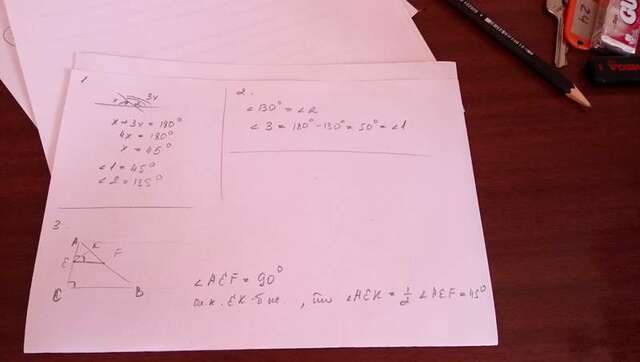 1
x 3x
x + 3x = 180°
4x = 180°
x = 45°
∠1 = 45°
∠2 = 135°
2.
∠130° = ∠2
∠3 = 180° - 130° = 50° = ∠1
3.
A
K
E
F
C
B
∠AEF = 90°
т.к. EK - бис. , то ∠AEK = 1/2 ∠AEF = 45°
24